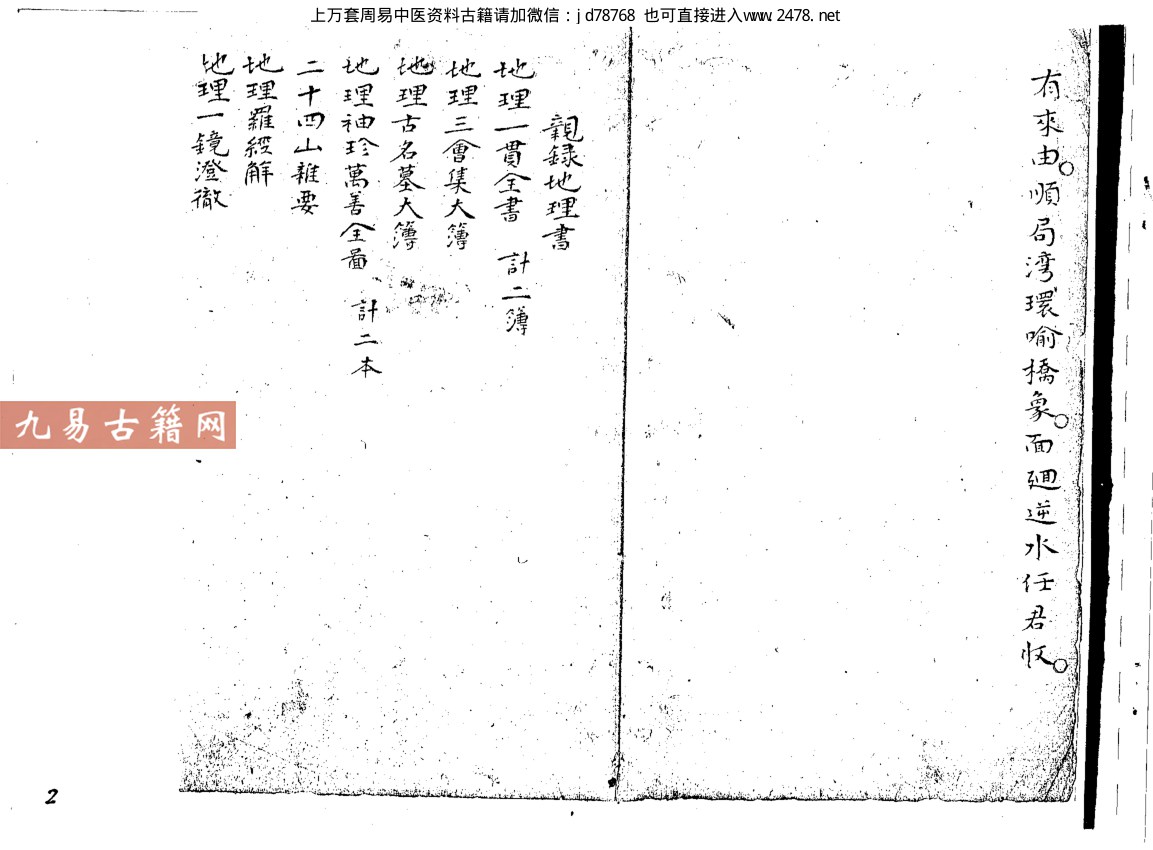 上万套周易中医资料古籍请加微信：jd78768 也可直接进入www.2478.net
有來由。順局湾環喻橋象。面廻逆水任君收。
親録地理書
地理一貫全書　計二簿
地理三會集大簿
地理古名墓大簿
地理袖珍萬善全圖　計二本
二十四山雜要
地理羅經解
地理一鏡澄徹
九易古籍网
2